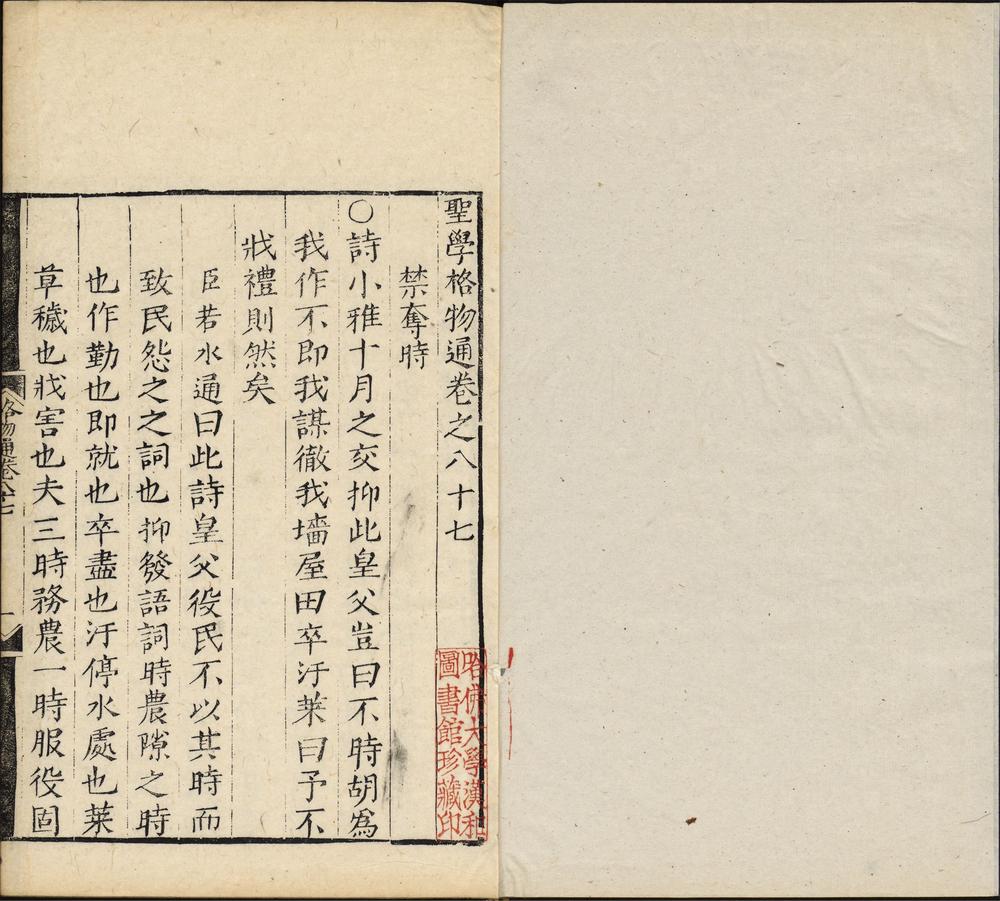 聖學格物通卷之八十七
禁奪時
○詩小雅十月之交抑此皇父豈曰不時胡為
我作不即我謀徹我墻屋田卒汙萊曰予不
戕禮則然矣
臣若水通曰此詩皇父役民不以其時而
致民怨之之詞也抑發語詞時農隙之時
也作勤也即就也卒盡也汙停水處也萊
草穢也戕害也夫三時務農一時服役固
格物通卷八十七
一
哈佛大學漢和
圖書館珍藏印